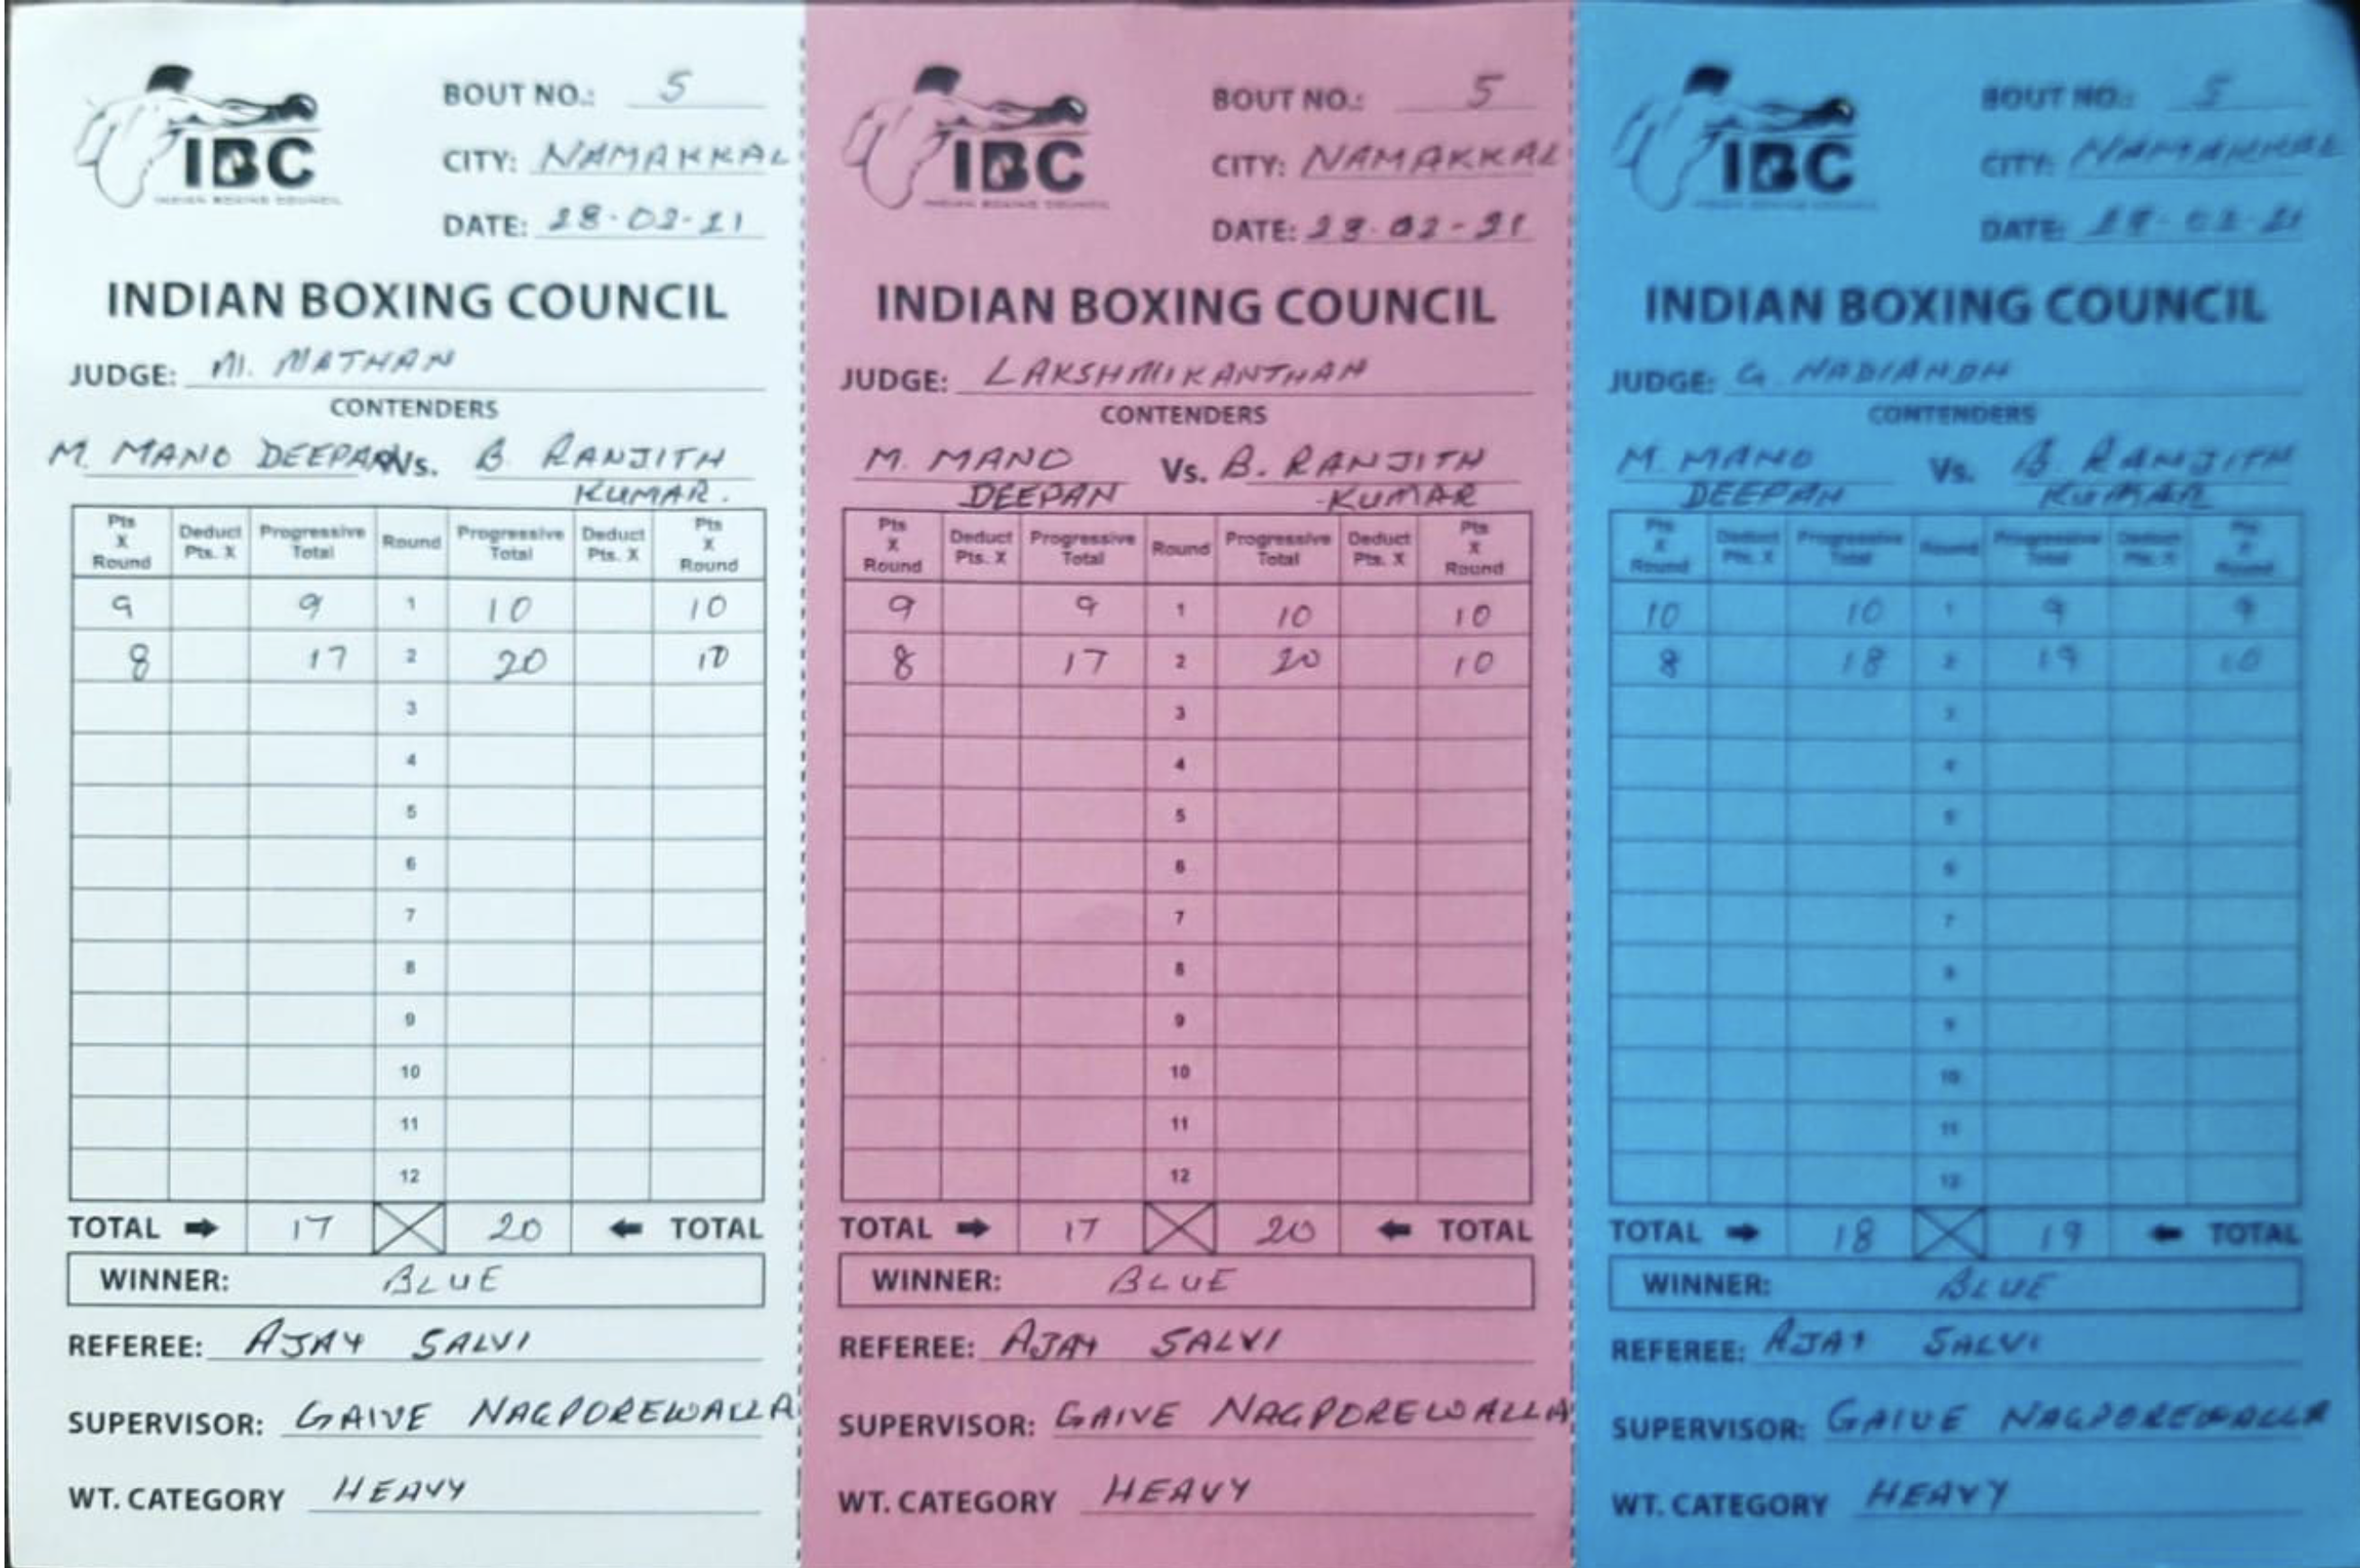 IBC
INDIAN BOXING COUNCIL
BOUT NO.: 5
CITY: NAMAKKAL
DATE: 28-02-21
INDIAN BOXING COUNCIL
JUDGE: M. MATHAN
CONTENDERS
M. MANO DEEPAN Vs. B RANJITH
KUMAR.
Pts X Round Deduct Pts. X Progressive Total Round Progressive Total Deduct Pts. X Pts X Round
9 9 1 10 10
8 17 2 20 10
3
4
5
6
7
8
9
10
11
12
TOTAL 17 20 TOTAL
WINNER: BLUE
REFEREE: AJAY SALVI
SUPERVISOR: GAIVE NAGPOREWALLA
WT. CATEGORY HEAVY
IBC
INDIAN BOXING COUNCIL
BOUT NO.: 5
CITY: NAMAKKAL
DATE: 28-02-21
INDIAN BOXING COUNCIL
JUDGE: LAKSHMIKANTHAN
CONTENDERS
M. MANO Vs. B. RANJITH
DEEPAN KUMAR
Pts X Round Deduct Pts. X Progressive Total Round Progressive Total Deduct Pts. X Pts X Round
9 9 1 10 10
8 17 2 20 10
3
4
5
6
7
8
9
10
11
12
TOTAL 17 20 TOTAL
WINNER: BLUE
REFEREE: AJAY SALVI
SUPERVISOR: GAIVE NAGPOREWALLA
WT. CATEGORY HEAVY
IBC
BOUT NO.: 5
CITY: NAMAKKAL
DATE: 28-02-21
INDIAN BOXING COUNCIL
JUDGE: G.
CONTENDERS
M MANO Vs. B RANJITH
DEEPAN KUMAR
Pts X Round Deduct Pts. X Progressive Total Round Progressive Total Deduct Pts. X Pts X Round
10 10 1 9 9
8 18 2 19 10
3
4
5
6
7
8
9
10
11
12
TOTAL 18 19 TOTAL
WINNER: BLUE
REFEREE: AJAY SALVI
SUPERVISOR: GAIVE NAGPOREWALLA
WT. CATEGORY HEAVY